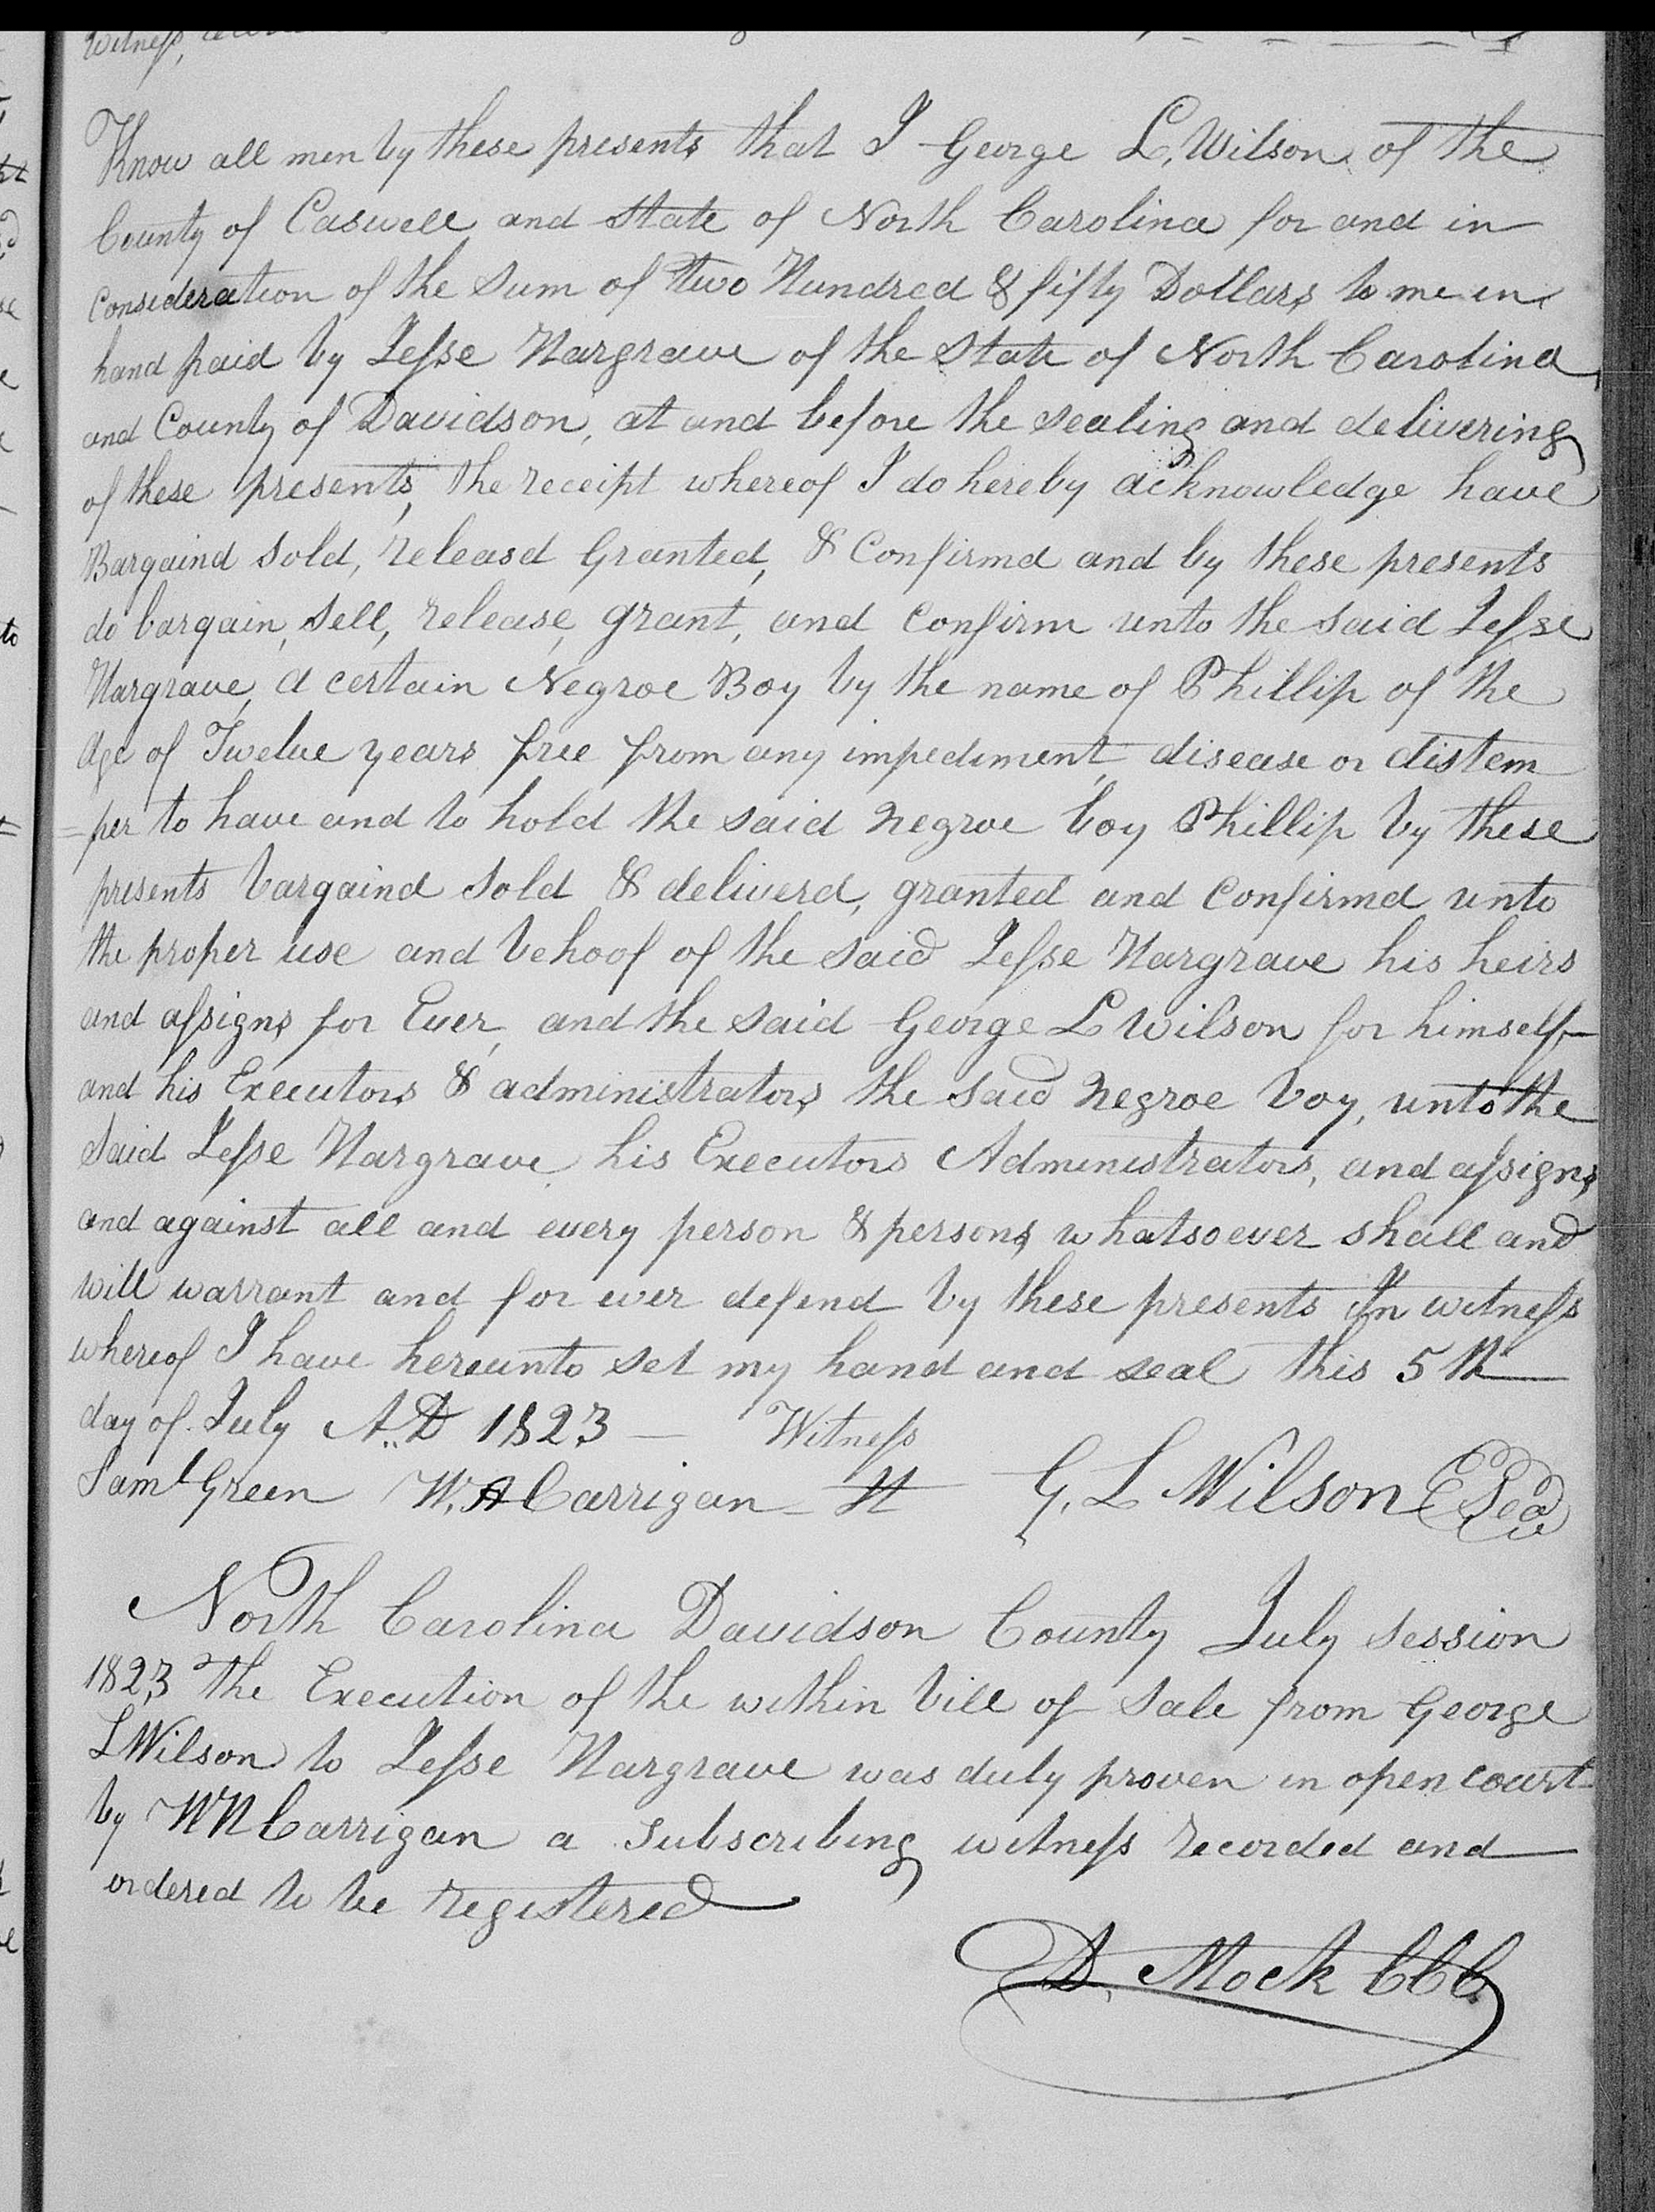 Witness,
Know all men by these presents that I George L. Wilson of the
County of Caswell and State of North Carolina for and in
Consideration of the Sum of two Hundred & fifty Dollars to me in
hand paid by Jesse Hargrave of the State of North Carolina
and County of Davidson, at and before the sealing and delivering
of these presents, the receipt whereof I do hereby acknowledge have
Bargaind Sold, released Granted, & Confirmd and by these presents
do bargain, Sell, release, grant, and Confirm unto the said Jesse
Hargrave, a certain Negroe Boy by the name of Phillip of the
Age of Twelve years free from any impediment, disease or distem
=per to have and to hold the said negroe boy Phillip by these
presents bargaind Sold & deliverd, granted and Confirmd unto
the proper use and behoof of the said Jesse Hargrave his heirs
and assigns for Ever, and the said George L Wilson for himself
and his Executors & administrators the said negroe boy, unto the
Said Jesse Hargrave his Executors Administrators, and assigns
and against all and every person & persons whatsoever shall and
will warrant and for ever defend by these presents In witness
whereof I have hereunto set my hand and seal this 5th
day of July A.D 1823 — Witness
Saml Green W. A Carrigan G. L Wilson Seal
North Carolina Davidson County July Session
1823 The Execution of the within bill of Sale from George
L Wilson to Jesse Hargrave was duly proven in open court
by WN Carrigan a Subscribing witness recorded and
ordered to be registered
D. Mock CCC